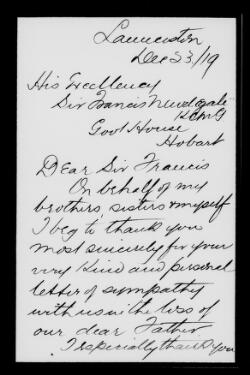 Launceston,
Dec 23/19
His Excellency
Sir Francis Newdegate
KCMG
Govt House
Hobart
Dear Sir Francis
On behalf of my
brothers, sisters & myself
I beg to thank you
most sincerely for your
very kind and personal
letter of sympathy
with us in the loss of
our dear Father.
I specially thank you